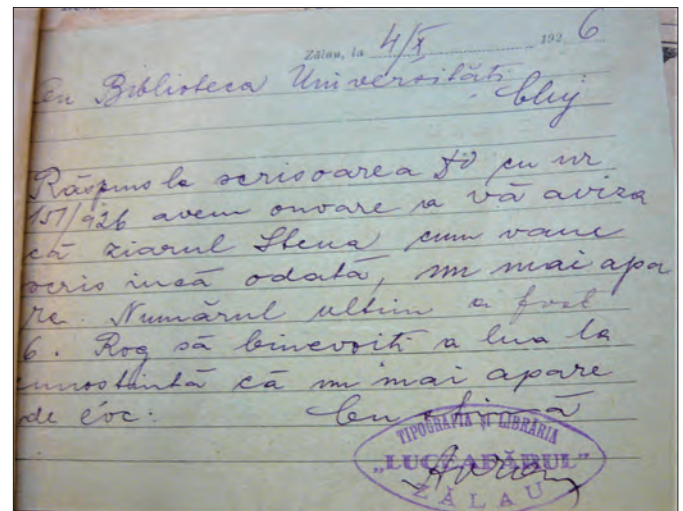 Zălau, la 4/X 1926
Biblioteca Universităti
Cluj
Răspuns la scrisoarea Dv cu nr
151/926 avem onoare a vă aviza
că ziarul Stena cum vam
scris incă odată, nu mai apa
re. Numărul ultim a fost
6. Rog să binevoiti a lua la
cunostintă că nu mai apare
de loc. Cu stimă
TIPOGRAFIA ȘI LIBRĂRIA
„LUCEAFĂRUL”
ZĂLAU